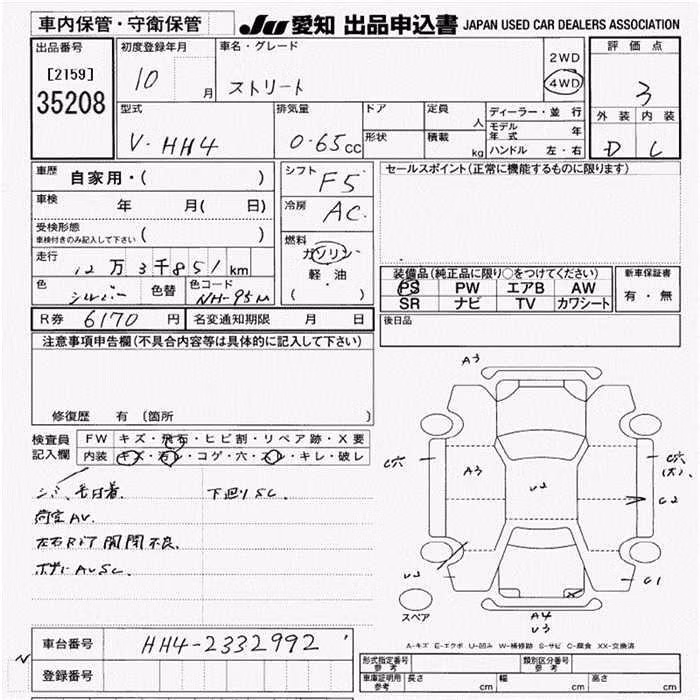 車内保管・守衛保管 JU 愛知 出品申込書 JAPAN USED CAR DEALERS ASSOCIATION
出品番号 初度登録年月 車名・グレード 2WD 評価点
[2159] 10 月 ストリート 4WD 3
35208
型式 排気量 ドア 定員 人 ディーラー・並行 外装 内装
V-HH4 0.65cc 形状 積載 kg モデル年式 年 D C
ハンドル 左・右
車歴 自家用・( ) シフト F5 セールスポイント(正常に機能するものに限ります)
車検 年 月( 日) 冷房 AC
受検形態 ( )
車検付きのみ記入して下さい
走行 12万3千851km 燃料 ガソリン
軽油
( )
色 シルバー 色替 色コード NH-95M
装備品(純正品に限り○をつけてください) 新車保証書
PS PW エアB AW 有・無
SR ナビ TV カワシート
R券 6170円 名変通知期限 月 日 後日品
注意事項申告欄(不具合内容等は具体的に記入して下さい)
修復歴 有 〔箇所 〕
検査員記入欄 FW キズ・飛石・ヒビ割・リペア跡・X要
内装 キズ・汚レ・コゲ・穴・スレ・キレ・破レ
シミ、毛付着 下廻りSC.
荷室AV.
左右Rドア開閉不良.
ボデーAUSC.
A3
C穴 A3 U2 C穴
(大)
C2
U2 C1
スペア A4
U3
A-キズ E-エクボ U-凹み W-補修跡 S-サビ C-腐食 XX-交換済
車台番号 HH4-2332992
登録番号
形式指定番号 参考 類別区分番号 参考
車庫証明用 参考 長さ cm 幅 cm 高さ cm